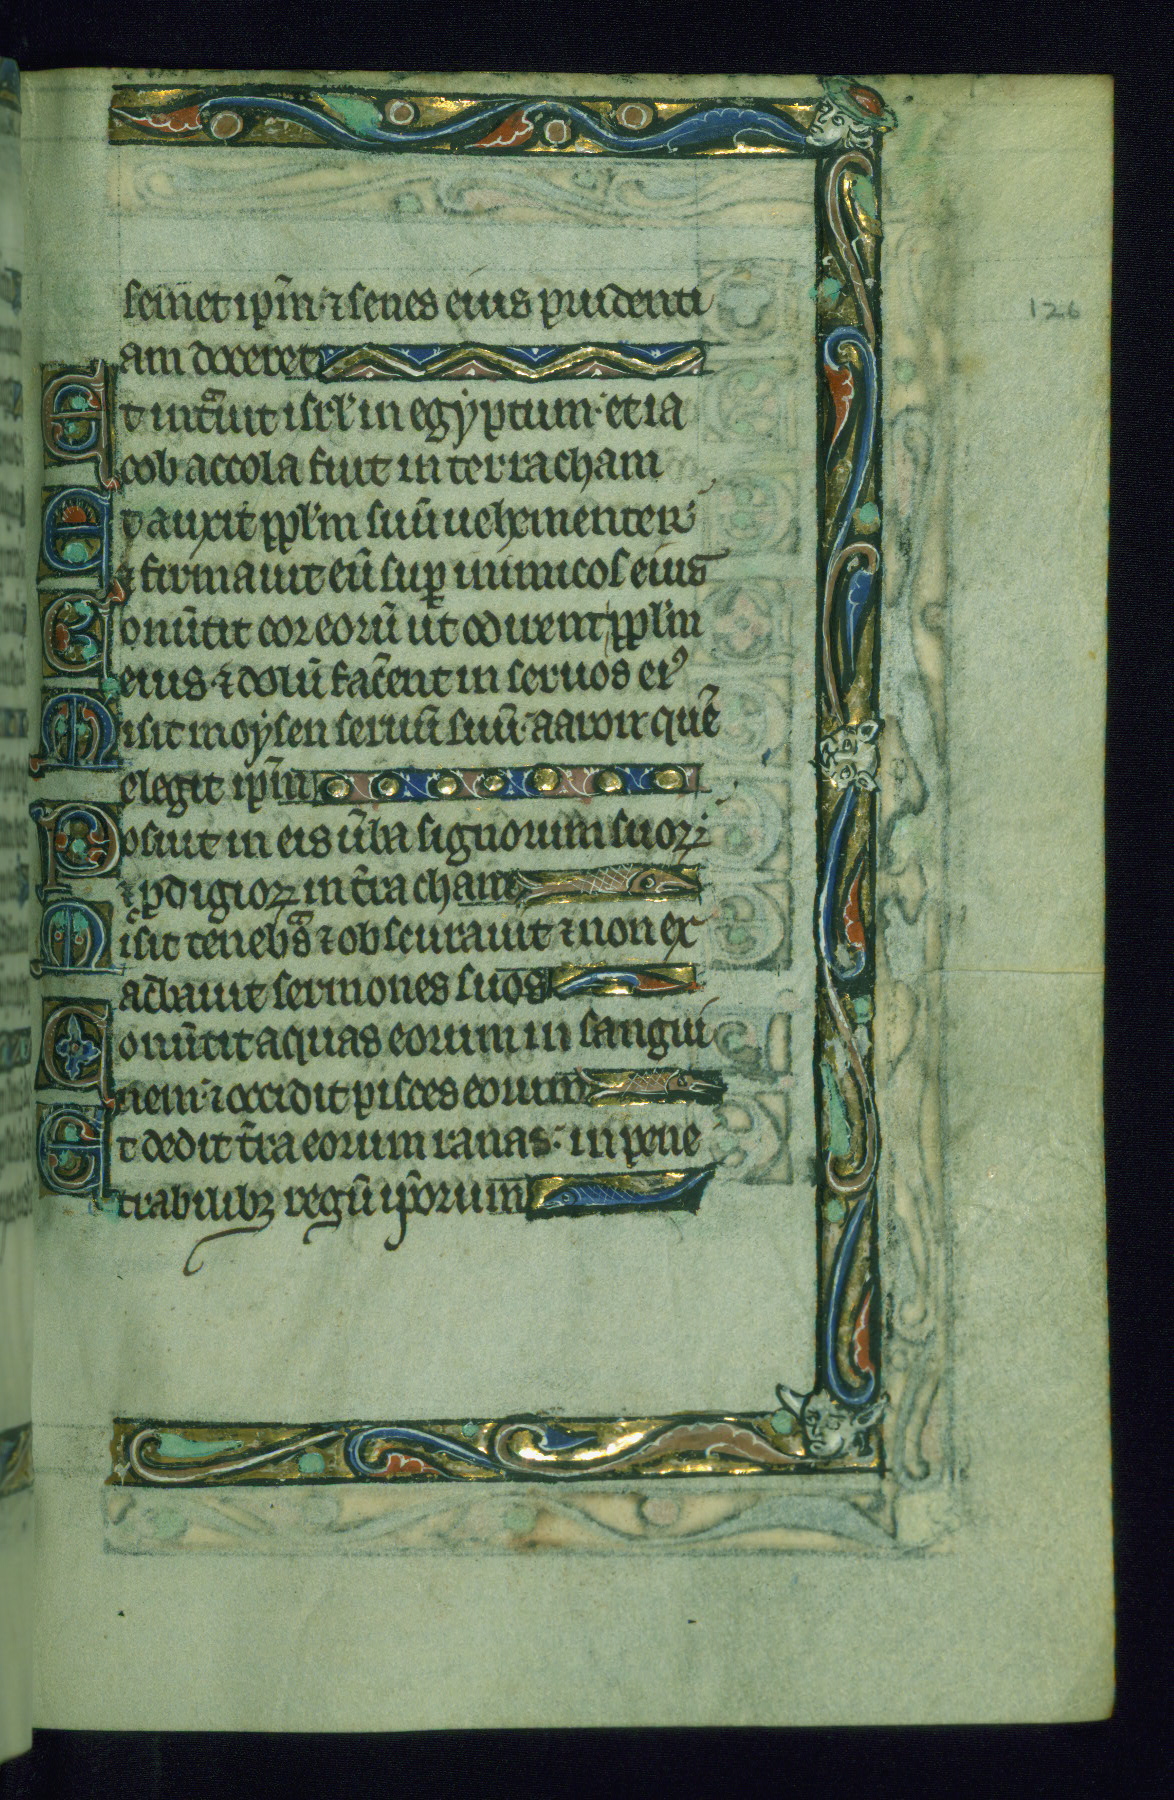 semet ip̄m·⁊ senes eius prudenti
am doceret
Et intᵃuit isrł in egyptum· et ia
cob accola fuit in terra cham
Et auxit ppl̄m suū uehementer·
⁊ firmauit eū suꝑ inimicos eius
Conūtit cor eorū ut odirent ppl̄m
eius ⁊ dolū fac̄ent in seruos eiꝰ
Misit moysen seruū suū· aaron quē
elegit ip̄m
Posuit in eis ūba signorum suoꝝ·
⁊ ꝓdigioꝝ in t̄ra cham
Misit tenebᵃs ⁊ obscurauit ⁊ non ex
acerbauit sermones suos
Conūtit aquas eorum in sangui
nem·⁊ occidit pisces eorum
Et dedit t̄ra eorum ranas· in pene
trabilibꝫ regū ip̄orum
126